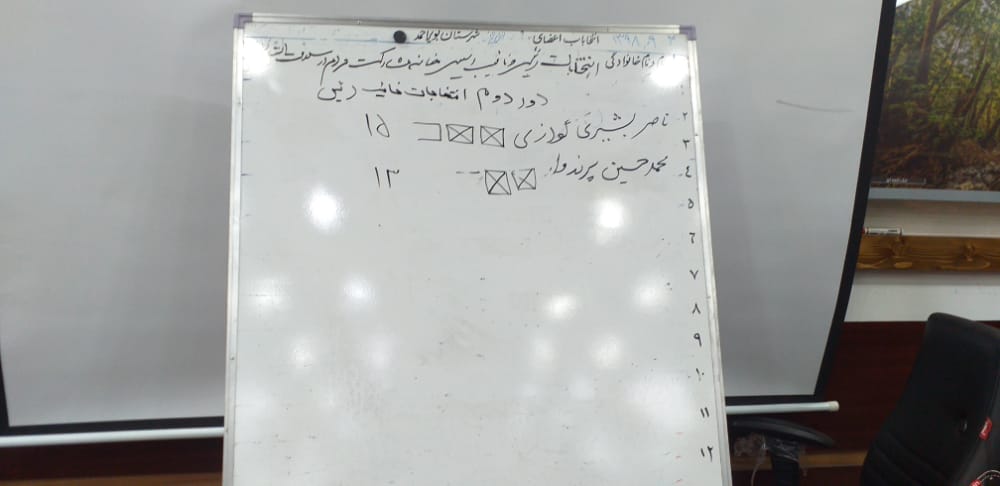 انتخابات اعضای شهرستان بویراحمد ۱۳۹۸/۹/
نام خانوادگی انتخابات رئیس و نایب رئیس مشارکت مردم در
دور دوم انتخابات نایب رئیس
۲ ناصر بشیری گوازی ۱۵
۳
۴ محمدحسین پرندوار ۱۳
۵
۶
۷
۸
۹
۱۰
۱۱
۱۲